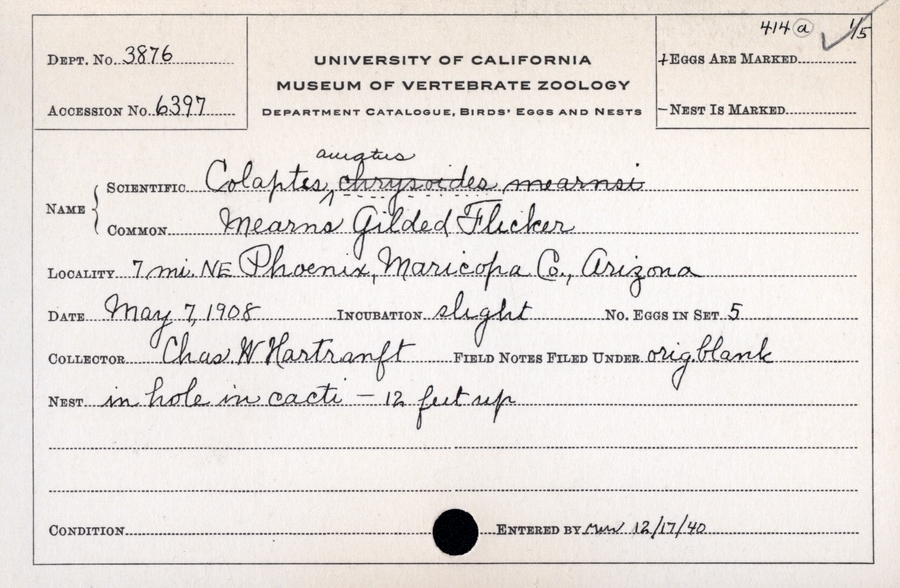 414 a 1/5
DEPT. No. 3876
UNIVERSITY OF CALIFORNIA
+EGGS ARE MARKED
MUSEUM OF VERTEBRATE ZOOLOGY
ACCESSION No. 6397
DEPARTMENT CATALOGUE, BIRDS' EGGS AND NESTS
-NEST IS MARKED
auratus
NAME
SCIENTIFIC Colaptes chrysoides mearnsi
COMMON Mearns Gilded Flicker
LOCALITY 7 mi. NE Phoenix, Maricopa Co., Arizona
DATE May 7, 1908 INCUBATION slight No. EGGS IN SET 5
COLLECTOR Chas. W Hartranft FIELD NOTES FILED UNDER orig. blank
NEST in hole in cacti – 12 feet up
CONDITION ENTERED BY 12/17/40